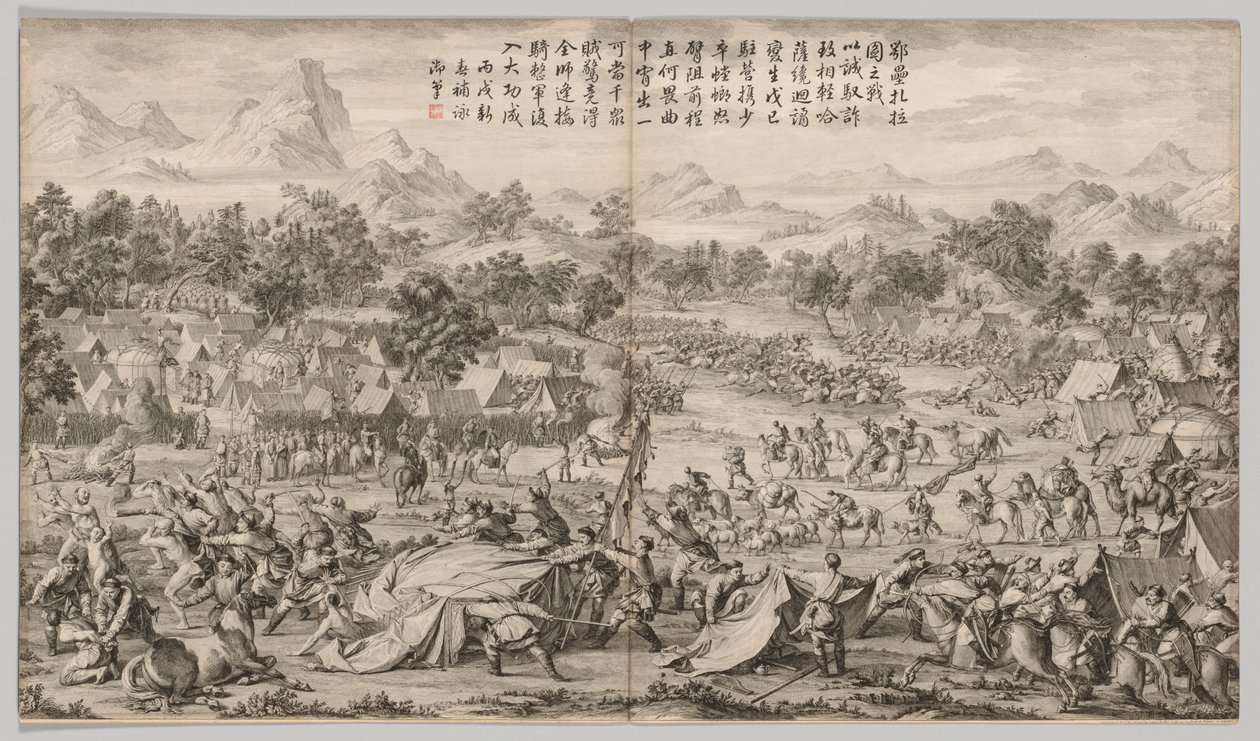 鄂壘扎拉
圖之戰
以誠馭詐
致相輕哈
薩繞迴譎
變生戊己
駐營攜少
卒螳螂怒
臂阻前程
直何畏曲
中宵出一
可當千眾
賊驚竟得
全師逢接
騎整軍復
入大功成
丙戌新
春補詠
御筆